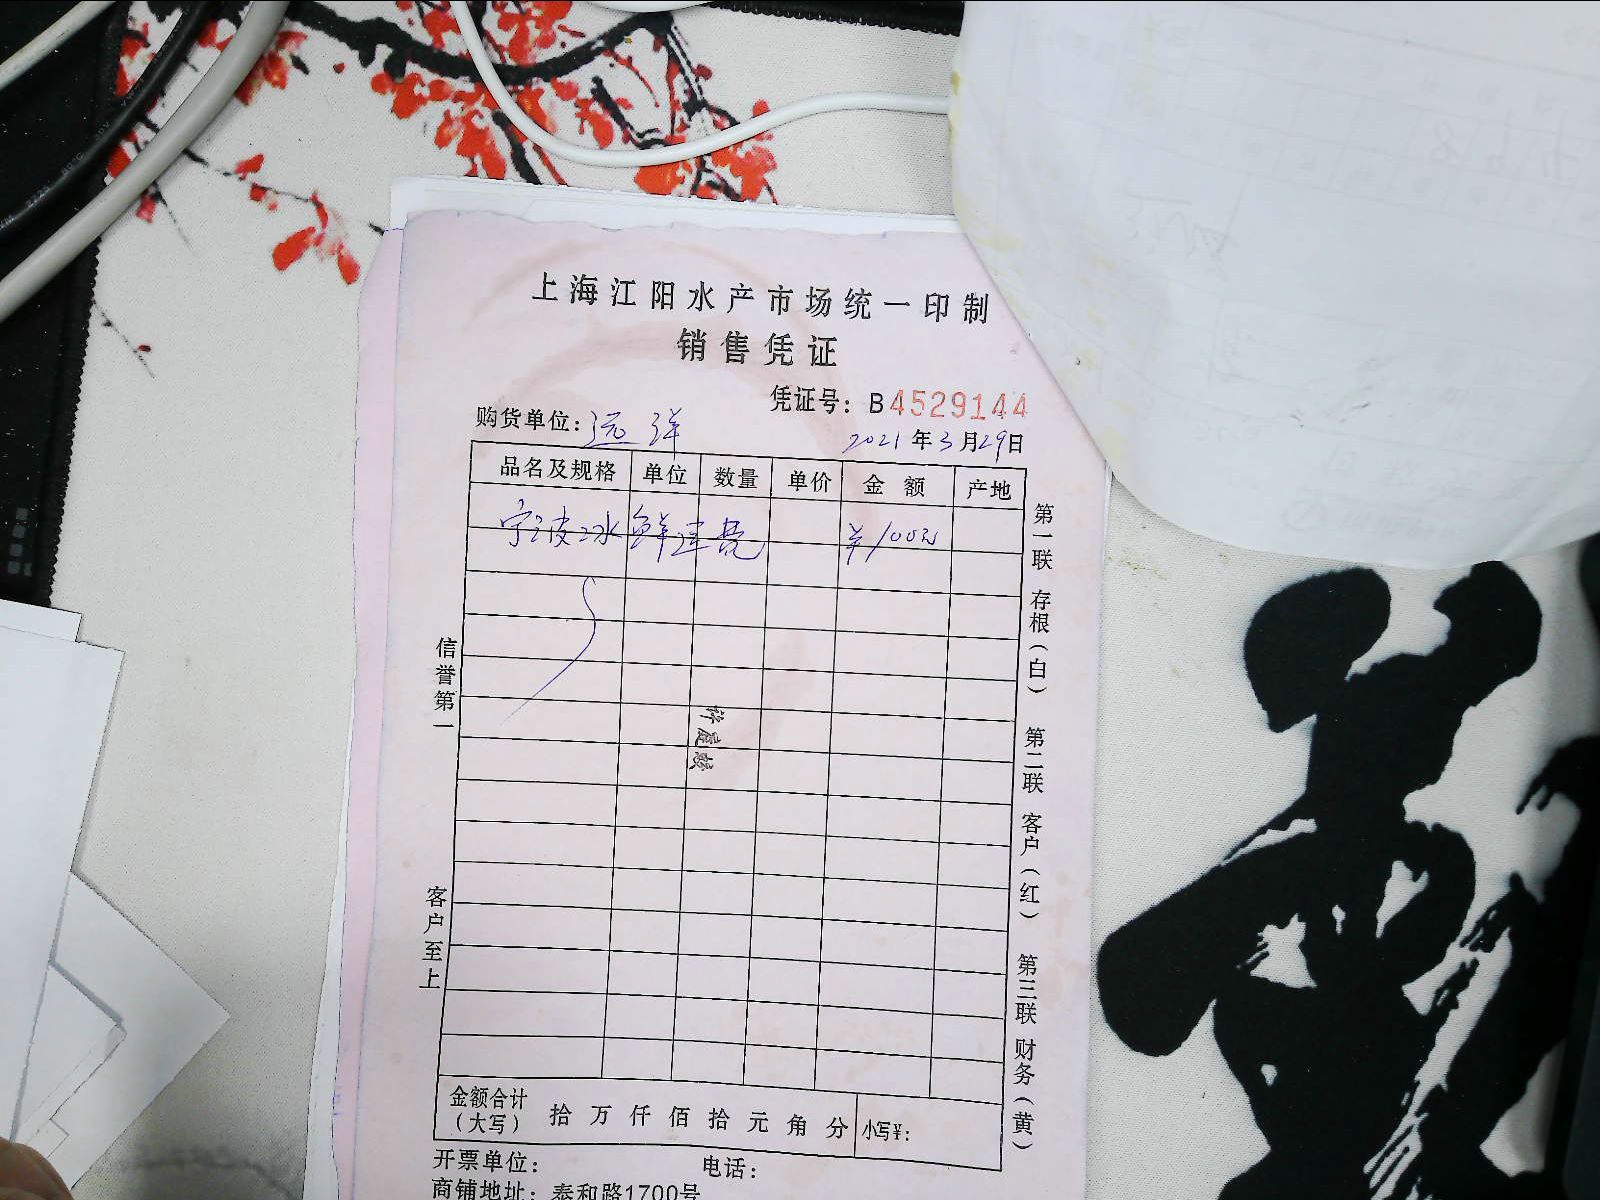 上海江阳水产市场统一印制
销售凭证
凭证号：B4529144
购货单位：远洋
2021年3月29日
品名及规格 单位 数量 单价 金额 产地
宁波冰鲜 ¥100元
第一联 存根（白） 第二联 客户（红） 第三联 财务（黄）
信誉第一
客户至上
金额合计（大写） 拾万仟佰拾元角分 小写¥：
开票单位： 电话：
商铺地址：泰和路1700号